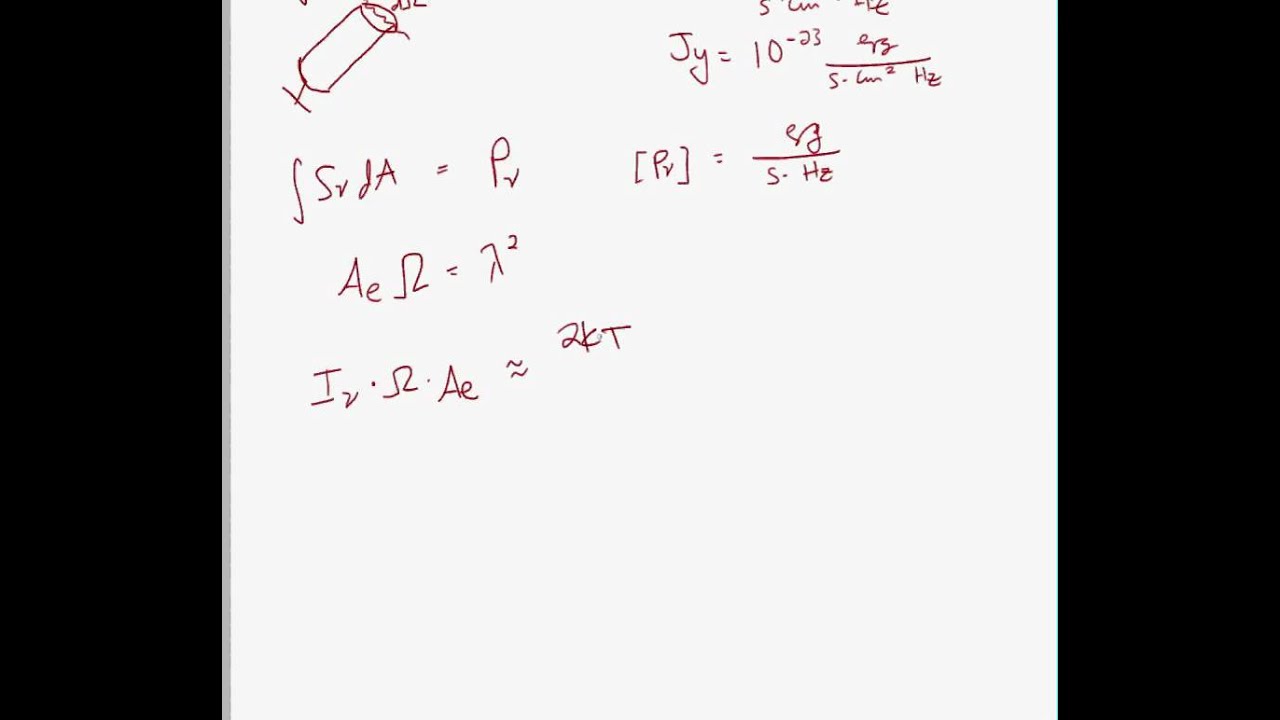 dΩ
s·cm² Hz
Jy = 10⁻²³ erg / s·cm² Hz
∫ Sν dA = Pν [Pν] = erg / s· Hz
Ae Ω = λ²
Iν · Ω · Ae ≈ 2kT